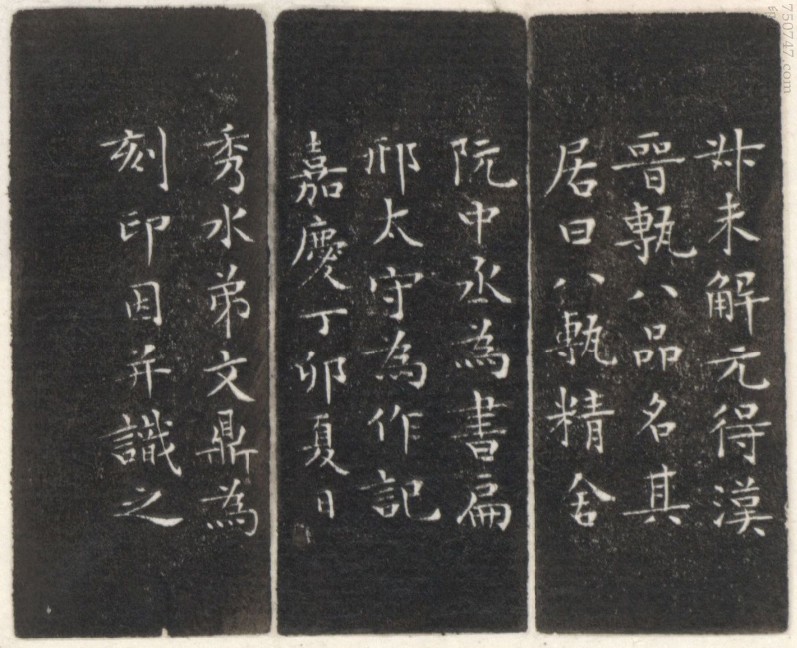 叔未解元得漢
晉甎八品名其
居曰八甎精舍
阮中丞為書扁
邢太守為作記
嘉慶丁卯夏日
秀水弟文鼎為
刻印因并識之
750747.com